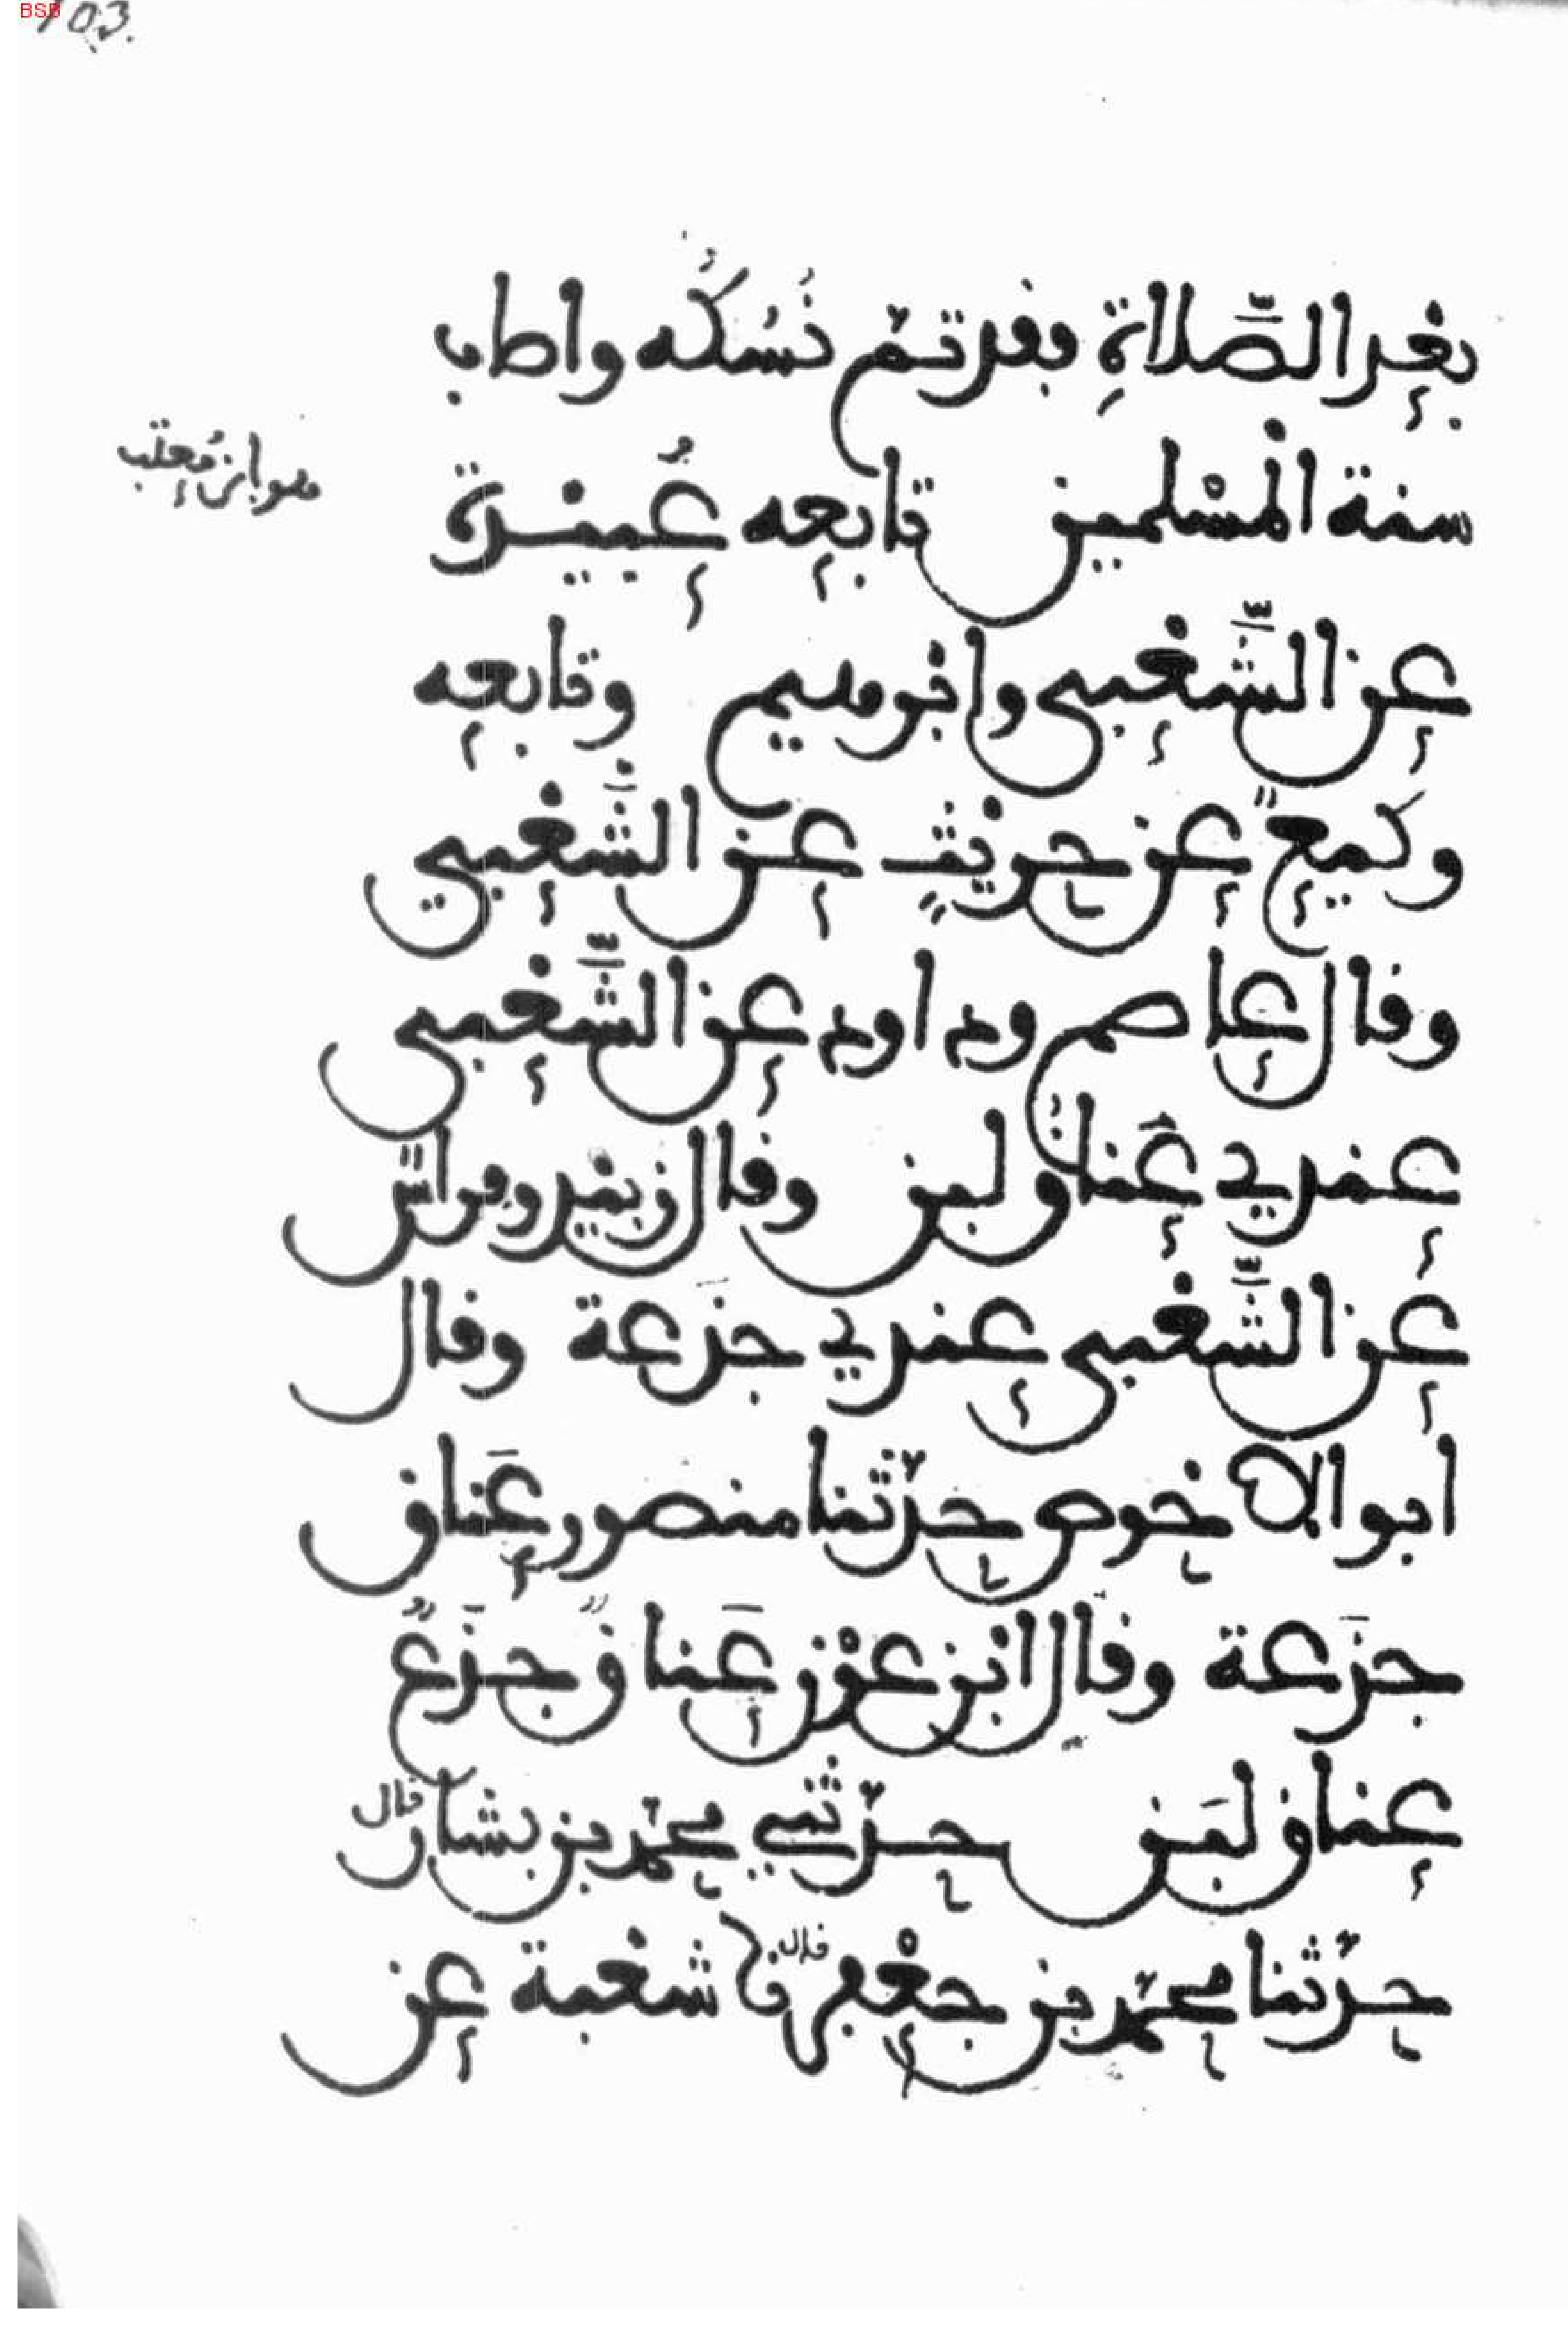 103.
بعد الصَّلاةِ فقد تمّ نُسُكُه واصاب
سنة الْمسْلمين تابعه عُبيدة
هو ابن مُعتب
عن الشَّعْبي وابْرهيم وتابعه
وكيعٌ عن حريْثٍ عن الشَّعْبي
وقال عاصم وداود عن الشَّعْبي
عندي عَناق لبن وقال زبيْد وفراسٌ
عن الشَّعْبي عندي جذَعة وقال
ابو الاحْوص حدّثنا منصور عَناق
جذَعة وقال ابْن عوْن عَناقٌ جذَعٌ
عناق لبَن حدّثني محمّد بن بشار قال
حدّثنا محمّد بن جعْفر قال نا شعْبة عن
BSB